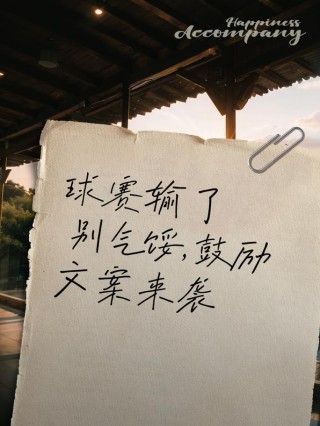 Happiness
Accompany
球赛输了
别气馁,鼓励
文案来袭